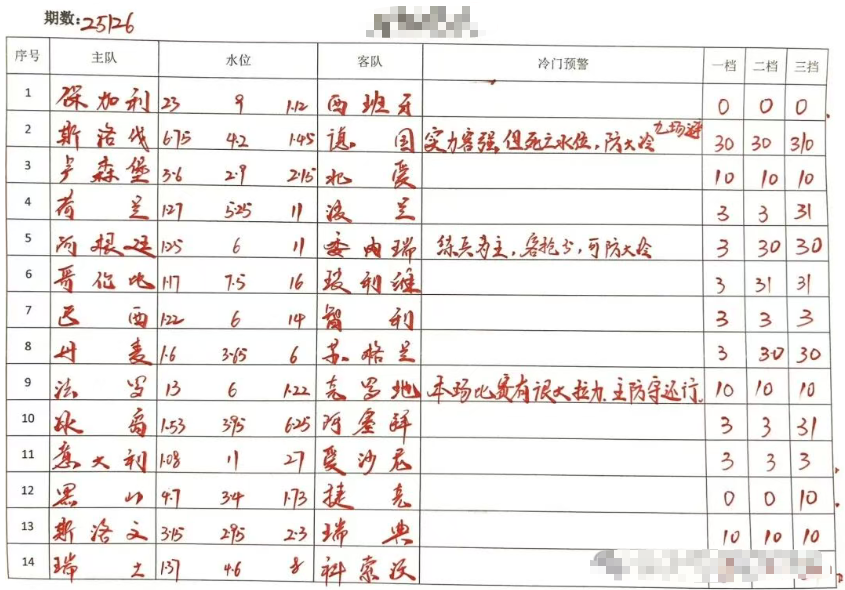 期数:25126
序号 主队 水位 客队 冷门预警 一档 二档 三挡
1 保加利 23 9 1.12 西班牙 0 0 0
2 斯洛伐 6.75 4.2 1.45 德国 实力客强,但死亡水位,防大冷 30 30 310
3 卢森堡 3.6 2.9 2.15 北爱 10 10 10
4 荷兰 1.27 5.25 11 波兰 3 3 31
5 阿根廷 1.25 6 11 委内瑞 练兵为主,客抢分,可防大冷 3 30 30
6 哥伦比 1.17 7.5 16 玻利维 3 31 31
7 巴西 1.22 6 14 智利 3 3 3
8 丹麦 1.6 3.65 6 苏格兰 3 30 30
9 法罗 13 6 1.22 克罗地 本场比赛有很大拉力,主防守还行. 10 10 10
10 冰岛 1.53 3.95 6.25 阿塞拜 3 3 31
11 意大利 1.08 11 27 爱沙尼 3 3 3
12 黑山 4.7 3.4 1.73 捷克 0 0 10
13 斯洛文 3.15 2.95 2.3 瑞典 10 10 10
14 瑞士 1.37 4.6 8 科索沃